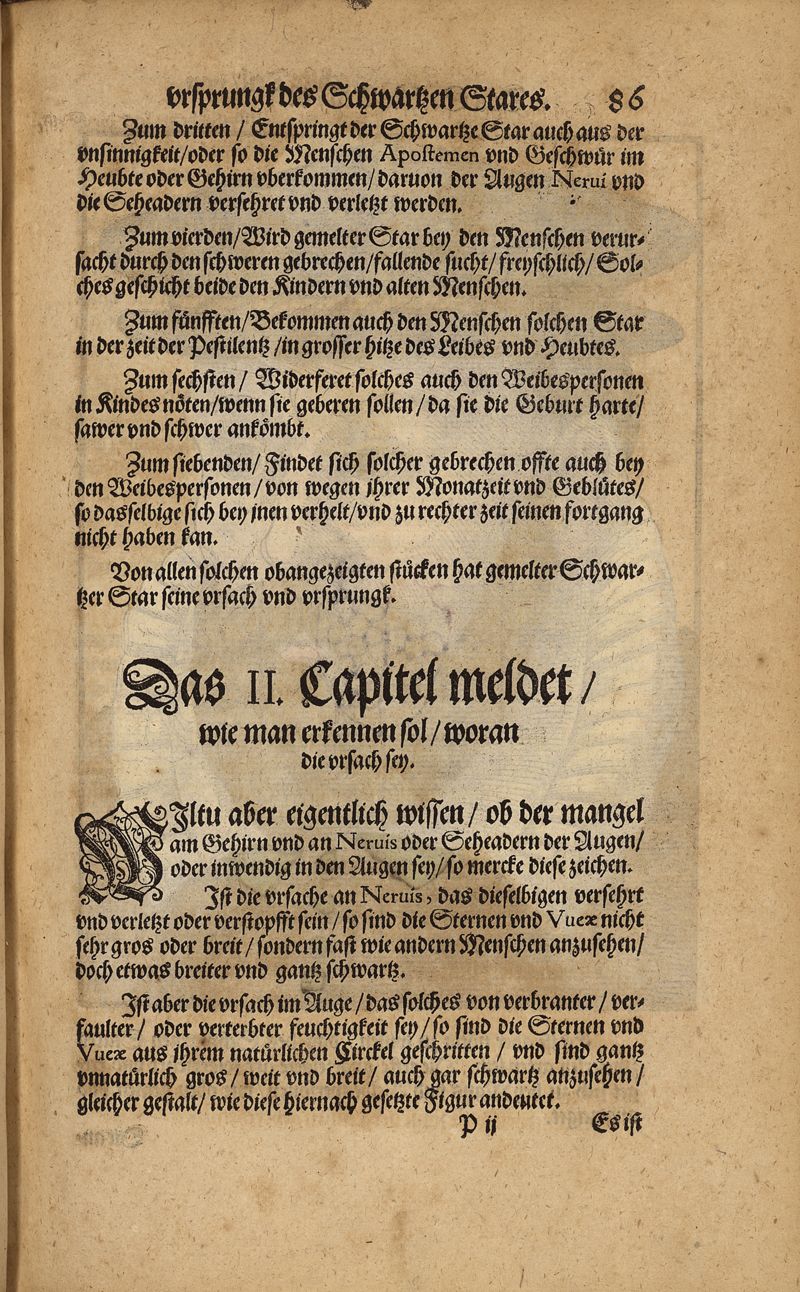 vrsprungk des Schwartzen Stares. 86
Zum dritten / Entspringt der Schwartze Star auch aus der
vnsinnigkeit/oder so die Menschen Apostemen vnd Geschwür im
Heubte oder Gehirn vberkommen/daruon der Augen Nerui vnd
die Seheadern versehret vnd verletzt werden.
Zum vierden/Wird gemelter Star bey den Menschen verur-
sacht durch den schweren gebrechen/fallende sucht/freyschlich/Sol-
ches geschicht beide den Kindern vnd alten Menschen.
Zum fünfften/Bekommen auch den Menschen solchen Star
in der zeit der Pestilentz/in grosser hitze des Leibes vnd Heubtes.
Zum sechsten / Widerferet solches auch den Weibespersonen
in Kindes nöten/wenn sie geberen sollen/da sie die Geburt harte/
sawer vnd schwer ankömbt.
Zum siebenden/Findet sich solcher gebrechen offte auch bey
den Weibespersonen/von wegen ihrer Monatzeit vnd Geblütes/
so dasselbige sich bey jnen verhelt/vnd zu rechter zeit seinen fortgang
nicht haben kan.
Von allen solchen obangezeigten stücken hat gemelter Schwar-
tzer Star seine vrsach vnd vrsprungk.
Das II. Capitel meldet /
wie man erkennen sol/woran
die vrsach sey.
WIltu aber eigentlich wissen/ ob der mangel
am Gehirn vnd an Neruis oder Seheadern der Augen/
oder inwendig in den Augen sey/so mercke diese zeichen.
Ist die vrsache an Neruis, das dieselbigen versehrt
vnd verletzt oder verstopfft sein/so sind die Sternen vnd Vueæ nicht
sehr gros oder breit/sondern fast wie andern Menschen anzusehen/
doch etwas breiter vnd gantz schwartz.
Ist aber die vrsach im Auge/das solches von verbranter/ver-
faulter/ oder verterbter feuchtigkeit sey/so sind die Sternen vnd
Vueæ aus ihrem natürlichen Circkel geschritten / vnd sind gantz
vnnatürlich gros/weit vnd breit/ auch gar schwartz anzusehen/
gleicher gestalt/wie diese hiernach gesetzte Figur andeutet.
P ij Es ist